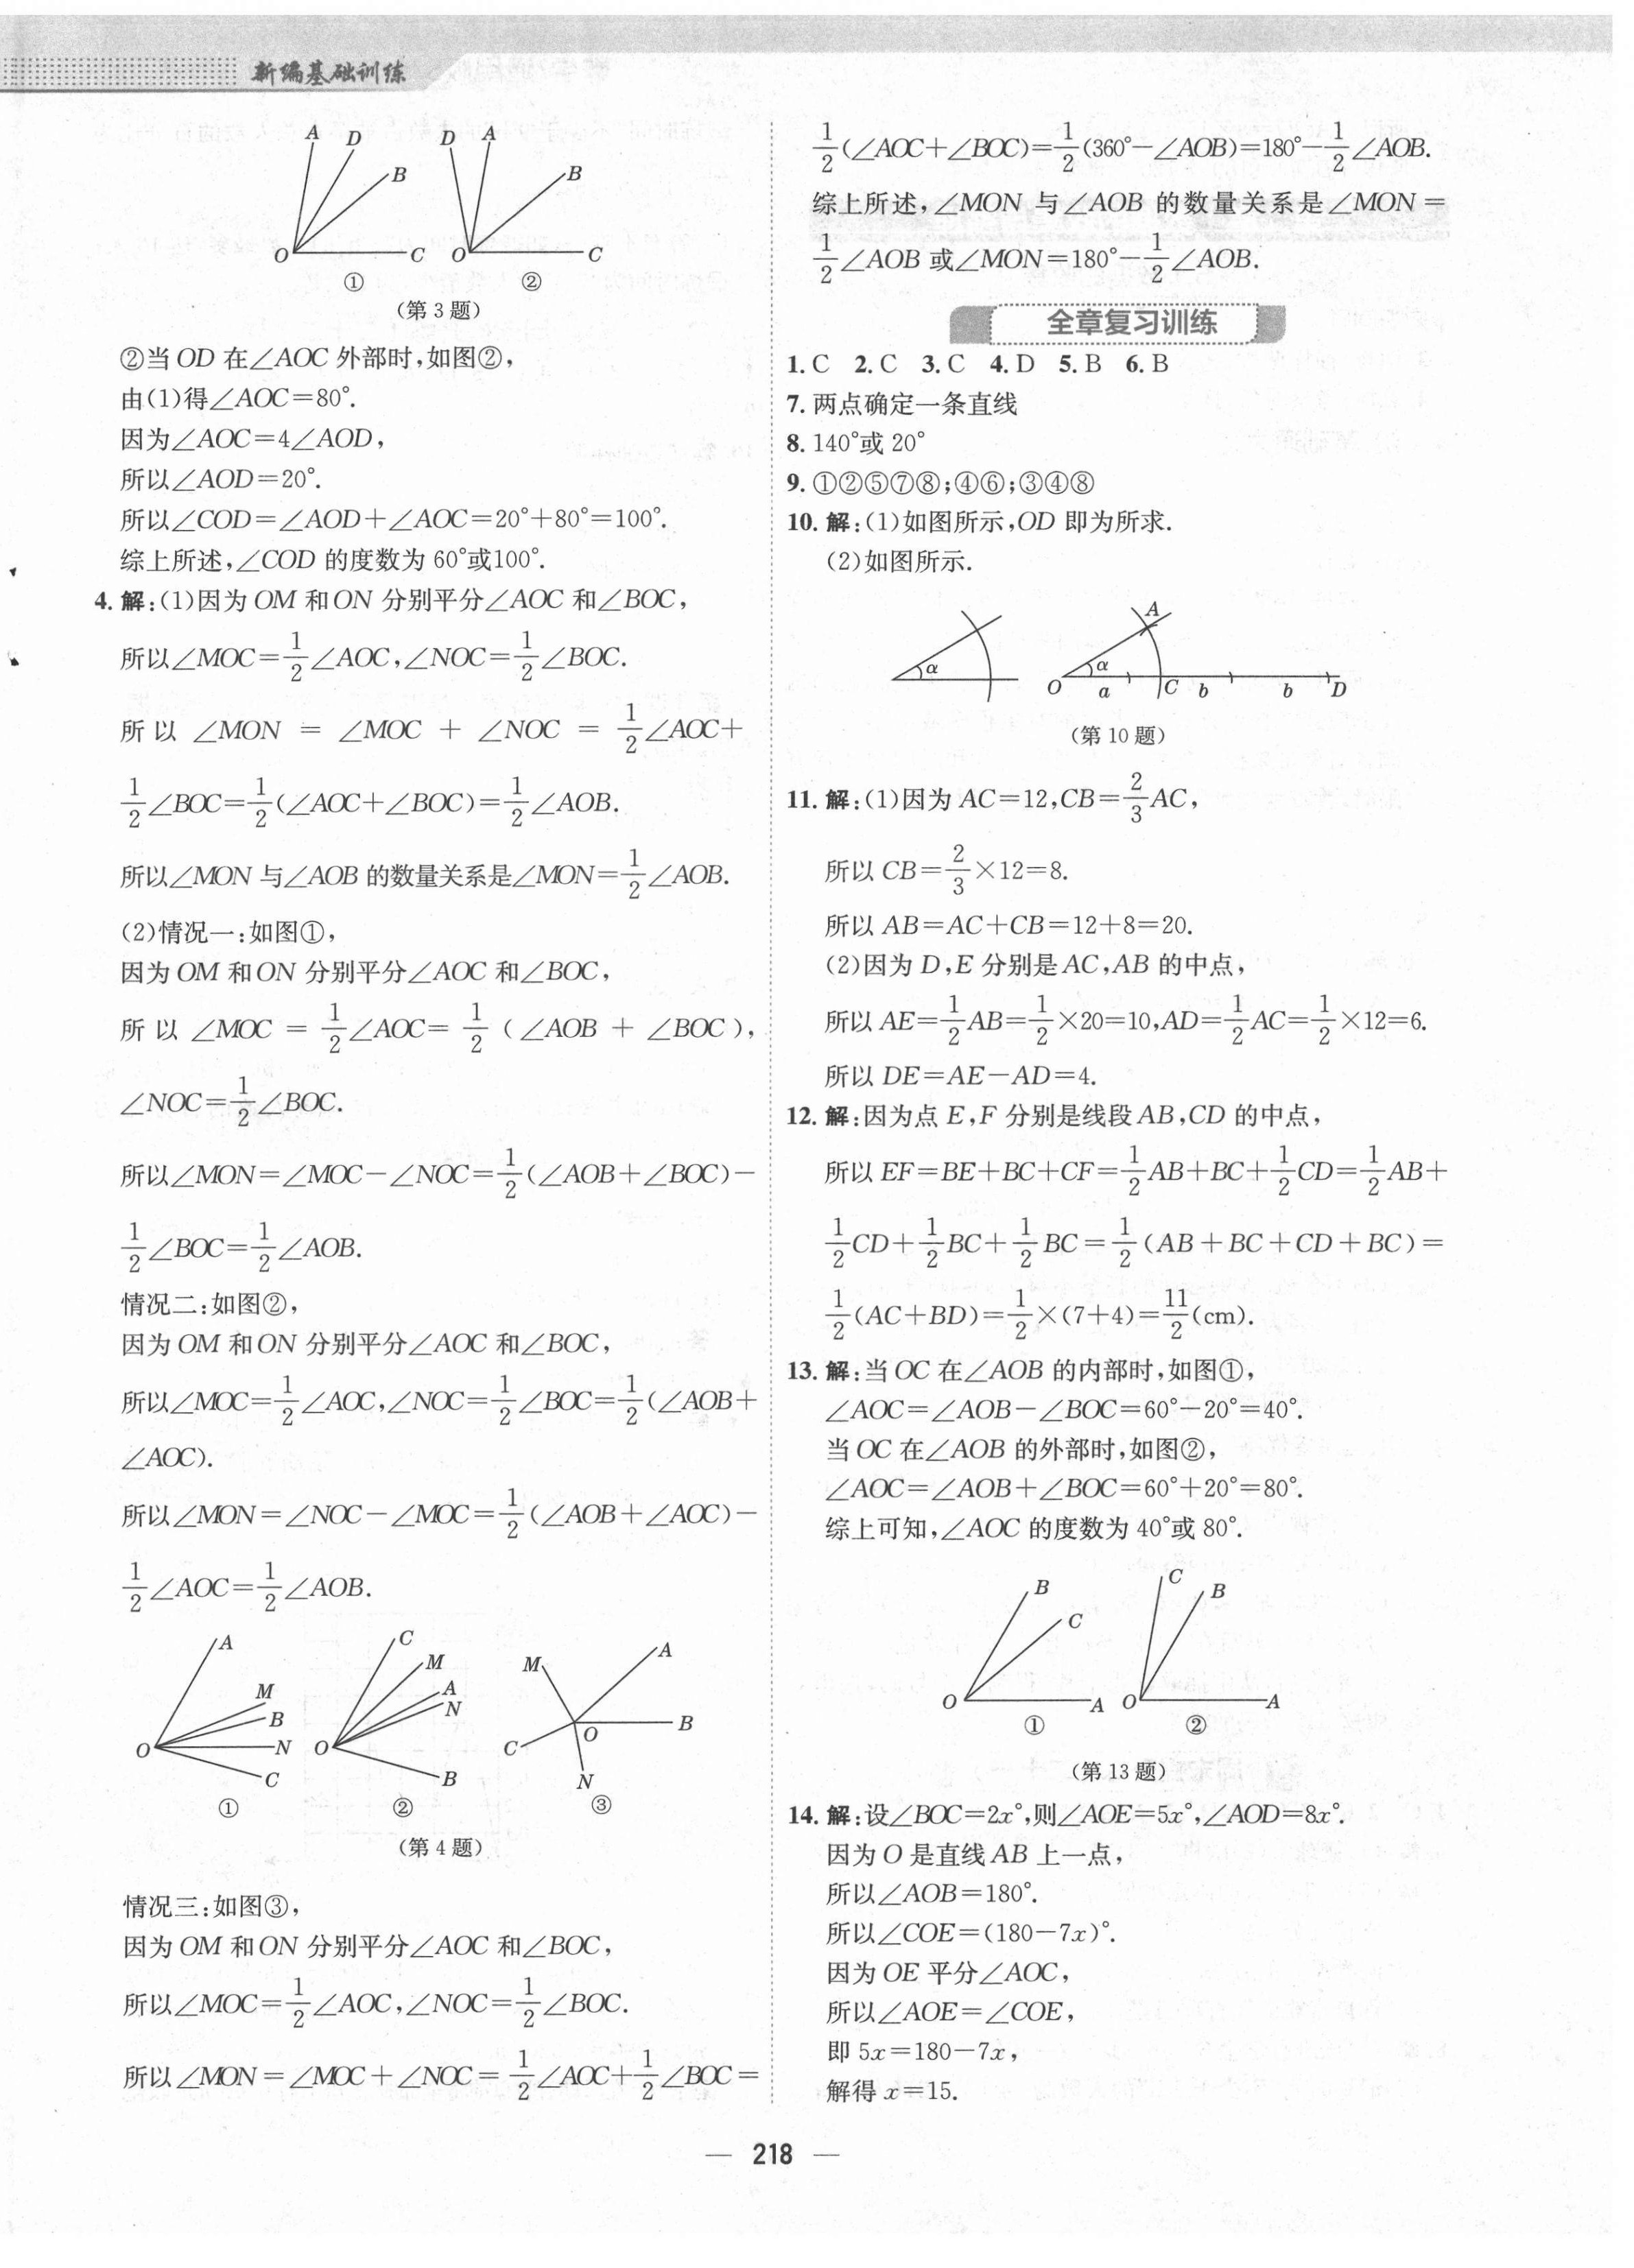 新编基础训练
A D B O C
①
D A B O C
②
(第3题)
②当OD在∠AOC外部时,如图②,
由(1)得∠AOC=80°.
因为∠AOC=4∠AOD,
所以∠AOD=20°.
所以∠COD=∠AOD+∠AOC=20°+80°=100°.
综上所述,∠COD的度数为60°或100°.
4.解:(1)因为OM和ON分别平分∠AOC和∠BOC,
所以∠MOC=1/2∠AOC,∠NOC=1/2∠BOC.
所以 ∠MON = ∠MOC + ∠NOC = 1/2∠AOC+
1/2∠BOC=1/2(∠AOC+∠BOC)=1/2∠AOB.
所以∠MON与∠AOB的数量关系是∠MON=1/2∠AOB.
(2)情况一:如图①,
因为OM和ON分别平分∠AOC和∠BOC,
所以 ∠MOC = 1/2∠AOC= 1/2 (∠AOB + ∠BOC),
∠NOC=1/2∠BOC.
所以∠MON=∠MOC-∠NOC=1/2(∠AOB+∠BOC)-
1/2∠BOC=1/2∠AOB.
情况二:如图②,
因为OM和ON分别平分∠AOC和∠BOC,
所以∠MOC=1/2∠AOC,∠NOC=1/2∠BOC=1/2(∠AOB+
∠AOC).
所以∠MON=∠NOC-∠MOC=1/2(∠AOB+∠AOC)-
1/2∠AOC=1/2∠AOB.
A M B O N C
①
C M A N O B
②
M A B O C N
③
(第4题)
情况三:如图③,
因为OM和ON分别平分∠AOC和∠BOC,
所以∠MOC=1/2∠AOC,∠NOC=1/2∠BOC.
所以∠MON=∠MOC+∠NOC=1/2∠AOC+1/2∠BOC=
1/2(∠AOC+∠BOC)=1/2(360°-∠AOB)=180°-1/2∠AOB.
综上所述,∠MON与∠AOB的数量关系是∠MON=
1/2∠AOB或∠MON=180°-1/2∠AOB.
全章复习训练
1.C 2.C 3.C 4.D 5.B 6.B
7.两点确定一条直线
8.140°或20°
9.①②⑤⑦⑧;④⑥;③④⑧
10.解:(1)如图所示,OD即为所求.
(2)如图所示.
α
A α O a C b b D
(第10题)
11.解:(1)因为AC=12,CB=2/3AC,
所以CB=2/3×12=8.
所以AB=AC+CB=12+8=20.
(2)因为D,E分别是AC,AB的中点,
所以AE=1/2AB=1/2×20=10,AD=1/2AC=1/2×12=6.
所以DE=AE-AD=4.
12.解:因为点E,F分别是线段AB,CD的中点,
所以EF=BE+BC+CF=1/2AB+BC+1/2CD=1/2AB+
1/2CD+1/2BC+1/2BC=1/2(AB+BC+CD+BC)=
1/2(AC+BD)=1/2×(7+4)=11/2(cm).
13.解:当OC在∠AOB的内部时,如图①,
∠AOC=∠AOB-∠BOC=60°-20°=40°.
当OC在∠AOB的外部时,如图②,
∠AOC=∠AOB+∠BOC=60°+20°=80°.
综上可知,∠AOC的度数为40°或80°.
B C O A
①
C B O A
②
(第13题)
14.解:设∠BOC=2x°,则∠AOE=5x°,∠AOD=8x°.
因为O是直线AB上一点,
所以∠AOB=180°.
所以∠COE=(180-7x)°.
因为OE平分∠AOC,
所以∠AOE=∠COE,
即5x=180-7x,
解得x=15.
— 218 —